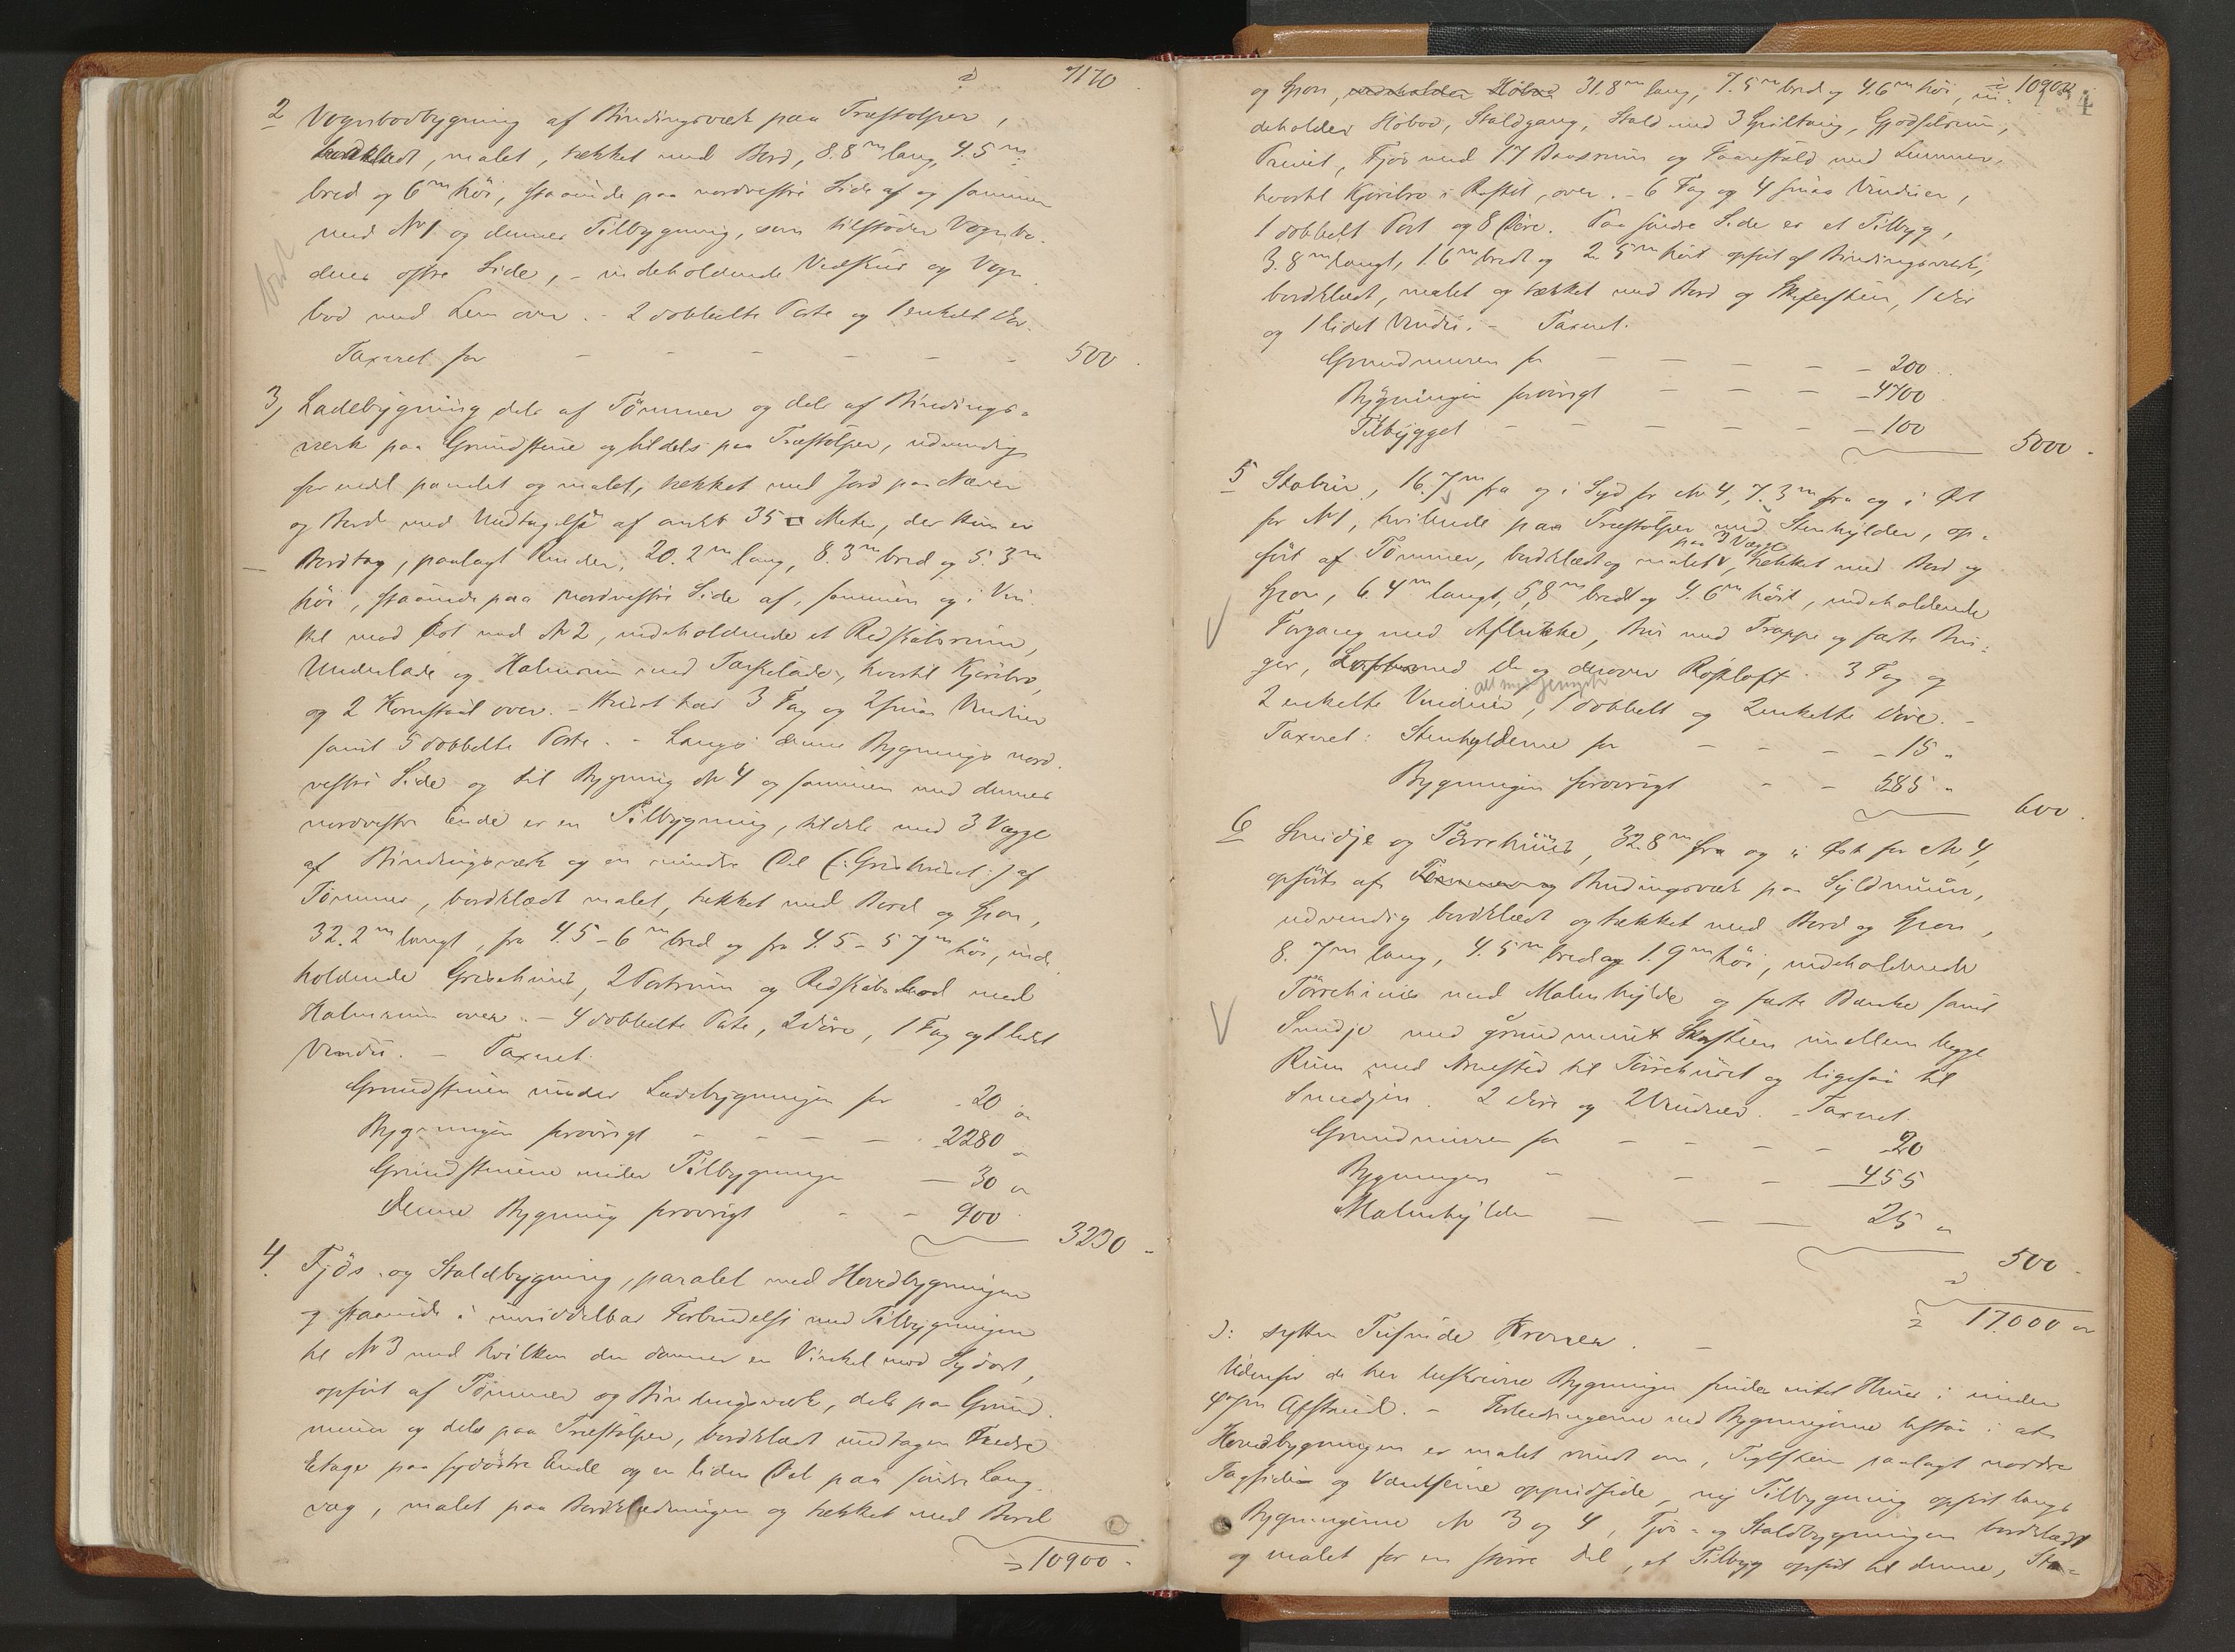 7170
2 Vognbodbygning af Bindingsværk paa Træstolper,
bordklædt, malet, tækket med Bord, 8.8 m lang, 4.5 m
bred og 6 m höi, staaende paa nordvestre Side af og sammen
med No 1 og dennes Tilbygning, som tilstöder Vognbo-
dens östre Side, - indeholdende Vedskur og Vogn-
bod med Lem over. - 2 dobbelte Porte og 1 enkelt Dör.
Taxeret for - - - - - - 500.
3, Ladebygning dels af Tömmer og dels af Bindings-
værk paa Grundstene og tildels paa Træstolper, udvendig
panelet og malet, tækket med Jord paa Næver
og Bord med Undtagelse af omkr 35 □ Meter, der kun er
Bordtag, paalagt Render, 20.2 m lang, 8.3 m bred og 5.3 m
höi, staaende paa nordvestre Side af, sammen og i Vin-
kel mod Öst med No 2, indeholdende et Redskabsrum,
Underlade og Halmrum med Tærskelade, hvortil Kjörebro,
og 2 Kornstaal over. - Huset har 3 Fag og 2 smaa Vinduer
samt 5 dobbelte Porte. - Langs denne Bygnings nord-
vestre Side og til Bygning No 4 og sammen med dennes
nordvestre Ende er en Tilbygning, tildels med 3 Vægge
af Bindingsværk og en mindre Del (: Grisehuset :) af
Tömmer, bordklædt malet, tækket med Bord og Spon,
32.2 m langt, fra 4.5 - 6 m bred og fra 4.5 - 5 7 m höi, inde-
holdende Grisehuus, 2 Portrum og Redskabsbod med
Halmrum over. - 4 dobbelte Porte, 2 Döre, 1 Fag og 1 lidet
Vindu. - Taxeret.
Grundstenen under Ladebygningen for - 20 "
Bygningen forövrigt - - - - - 2280 "
Grundstenene under Tilbygningen - 30 "
Denne Bygning forövrigt - - 900
3230 -
4. Fjös- og Staldbygning, paralel med Hovedbygningen
og staaende i umiddelbar Forbindelse med Tilbygningen
til No 3 med hvilken den danner en Vinkel mod Sydost,
opfört af Tömmer og Bindingsværk, dels paa Grund-
mur og dels paa Træstolper, bordklædt undtagen Nedre
Etage paa sydöstre Ende og en liden Del paa söndre Lang-
væg, malet paa Bordklædningen og tækket med Bord
10900 -
10900
og Spon, indeholder Höbod 31.8 m lang, 7.5 m bred og 4.6 m höi, in-
deholder Höbod, Staldgang, Stald med 3 Spiltoug, Gjödselrum,
Privet, Fjös med 17 Baasrum og Faarestald med Lemmer,
hvortil Kjörebro i Röstet, over. - 6 Fag og 4 smaa Vinduer,
1 dobbelt Port og 8 Döre. Paa söndre Side er et Tilbyg,
3.8 m langt, 1.6 m bredt og 2.5 m höit opfört af Bindingsværk,
bordklædt, malet og tækket med Bord og Skifersten, 1 Dör
og 1 lidet Vindu. - Taxeret.
Grundmuren for - - - - - 200.
Bygningen forövrigt - - - - 4700
Tilbygget - - - - - - 100
5000 -
5 Stabur, 16.7 m fra og i Syd for No 4, 7.3 m fra og i Öst
for No 1, hvilende paa Træstolper med Stenhylder, op-
fört af Tömmer, bordklædt og malet paa 3 Vægge, tækket med Bord og
Spon, 6.4 m langt, 5,8 m bredt og 4.6 m höit, indeholdende
Forgang med Aflukke, Bur med Trappe og faste Bin-
ger, Loft med Do og derover Röstloft. 3 Fag og
2 enkelte Vinduer, 1 dobbelt og 2 enkelte Döre. -
Taxeret: Stenhylderne for - - - - 15 "
Bygningen forövrigt - - 585 "
600.
6 Smidje og Törrehuus, 32.8 m fra og i Öst for No 4,
opfört af Tömmer og Bindingsværk paa Syldmuur,
udvendig bordklædt og tækket med Bord og Spon,
8.7 m lang, 4.5 m bred og 1.9 m höi, indeholdende
Törrehuus med Malmhylde og faste Bænke samt
Smidje med grundmuret Skorsten imellem begge
Rum med Arnested til Törrehuset og ligesaa til
Smidjen. 2 Döre og 2 Vinduer. - Taxeret.
Grundmuren for - - - - 20
Bygningen - - - 455
Malmhylden - - - 25 "
500 -
17.000 "
): sytten Tusinde Kroner. -
Udenfor de her beskrevne Bygninger findes intet Huus i mindre
Afstand. - Forbedringerne ved Bygningerne bestaa i at
Hovedbygningen er malet rundt om, Teglsten paalagt nordre
Tagside og Vandrene oppudsede, ny Tilbygning opfört langs
Bygningerne No 3 og 4, Fjös- og Staldbygningen bordklædt
og malet for en större Del, et Tilbyg opfört til denne, Sta-